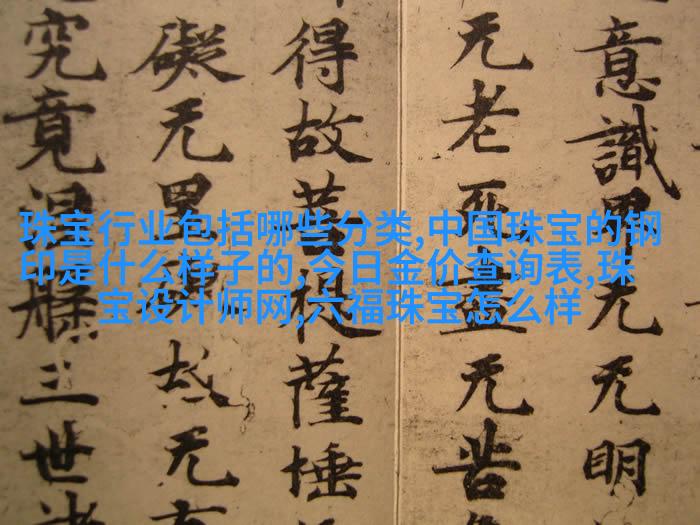 珠宝行业包括哪些分类,中国珠宝的钢
印是什么样子的,今日金价查询表,珠
宝设计师网,六福珠宝怎么样
意識界无无明
无老死盡无苦
得故菩提薩埵
礙无罣礙故无有
究竟涅槃三世諸